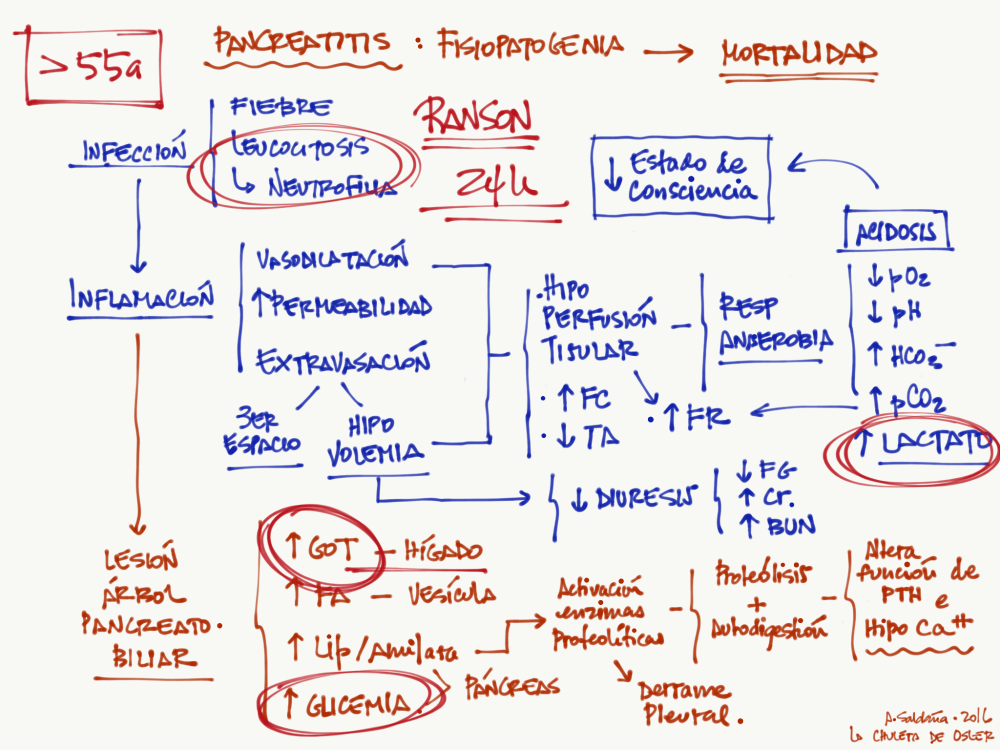 > 55a
PANCREATITIS : FISIOPATOGENIA → MORTALIDAD
INFECCIÓN
FIEBRE
LEUCOCITOSIS
↳ NEUTROFILIA
RANSON
24h
↓ Estado de
Consciencia
ACIDOSIS
↓ pO2
↓ pH
↑ HCO3⁻
↑ pCO2
↑ LACTATO
INFLAMACIÓN
VASODILATACIÓN
↑ PERMEABILIDAD
EXTRAVASACIÓN
3ER
ESPACIO
HIPO
VOLEMIA
. HIPO
PERFUSIÓN
TISULAR
· ↑ FC
· ↓ TA
· ↑ FR
RESP
ANAEROBIA
↓ DIURESIS
↓ FG
↑ Cr.
↑ BUN
LESIÓN
ÁRBOL
PANCREATO.
BILIAR
↑ GOT – HÍGADO
↑ FA – VESÍCULA
↑ Lip/Amilasa
↑ GLICEMIA.
PÁNCREAS
Activación
enzimas
Proteolíticas
Derrame
Pleural.
Proteólisis
+
Autodigestión
Altera
función de
PTH e
Hipo Ca⁺⁺
A. Saldaña · 2016
LA CHULETA DE OSLER